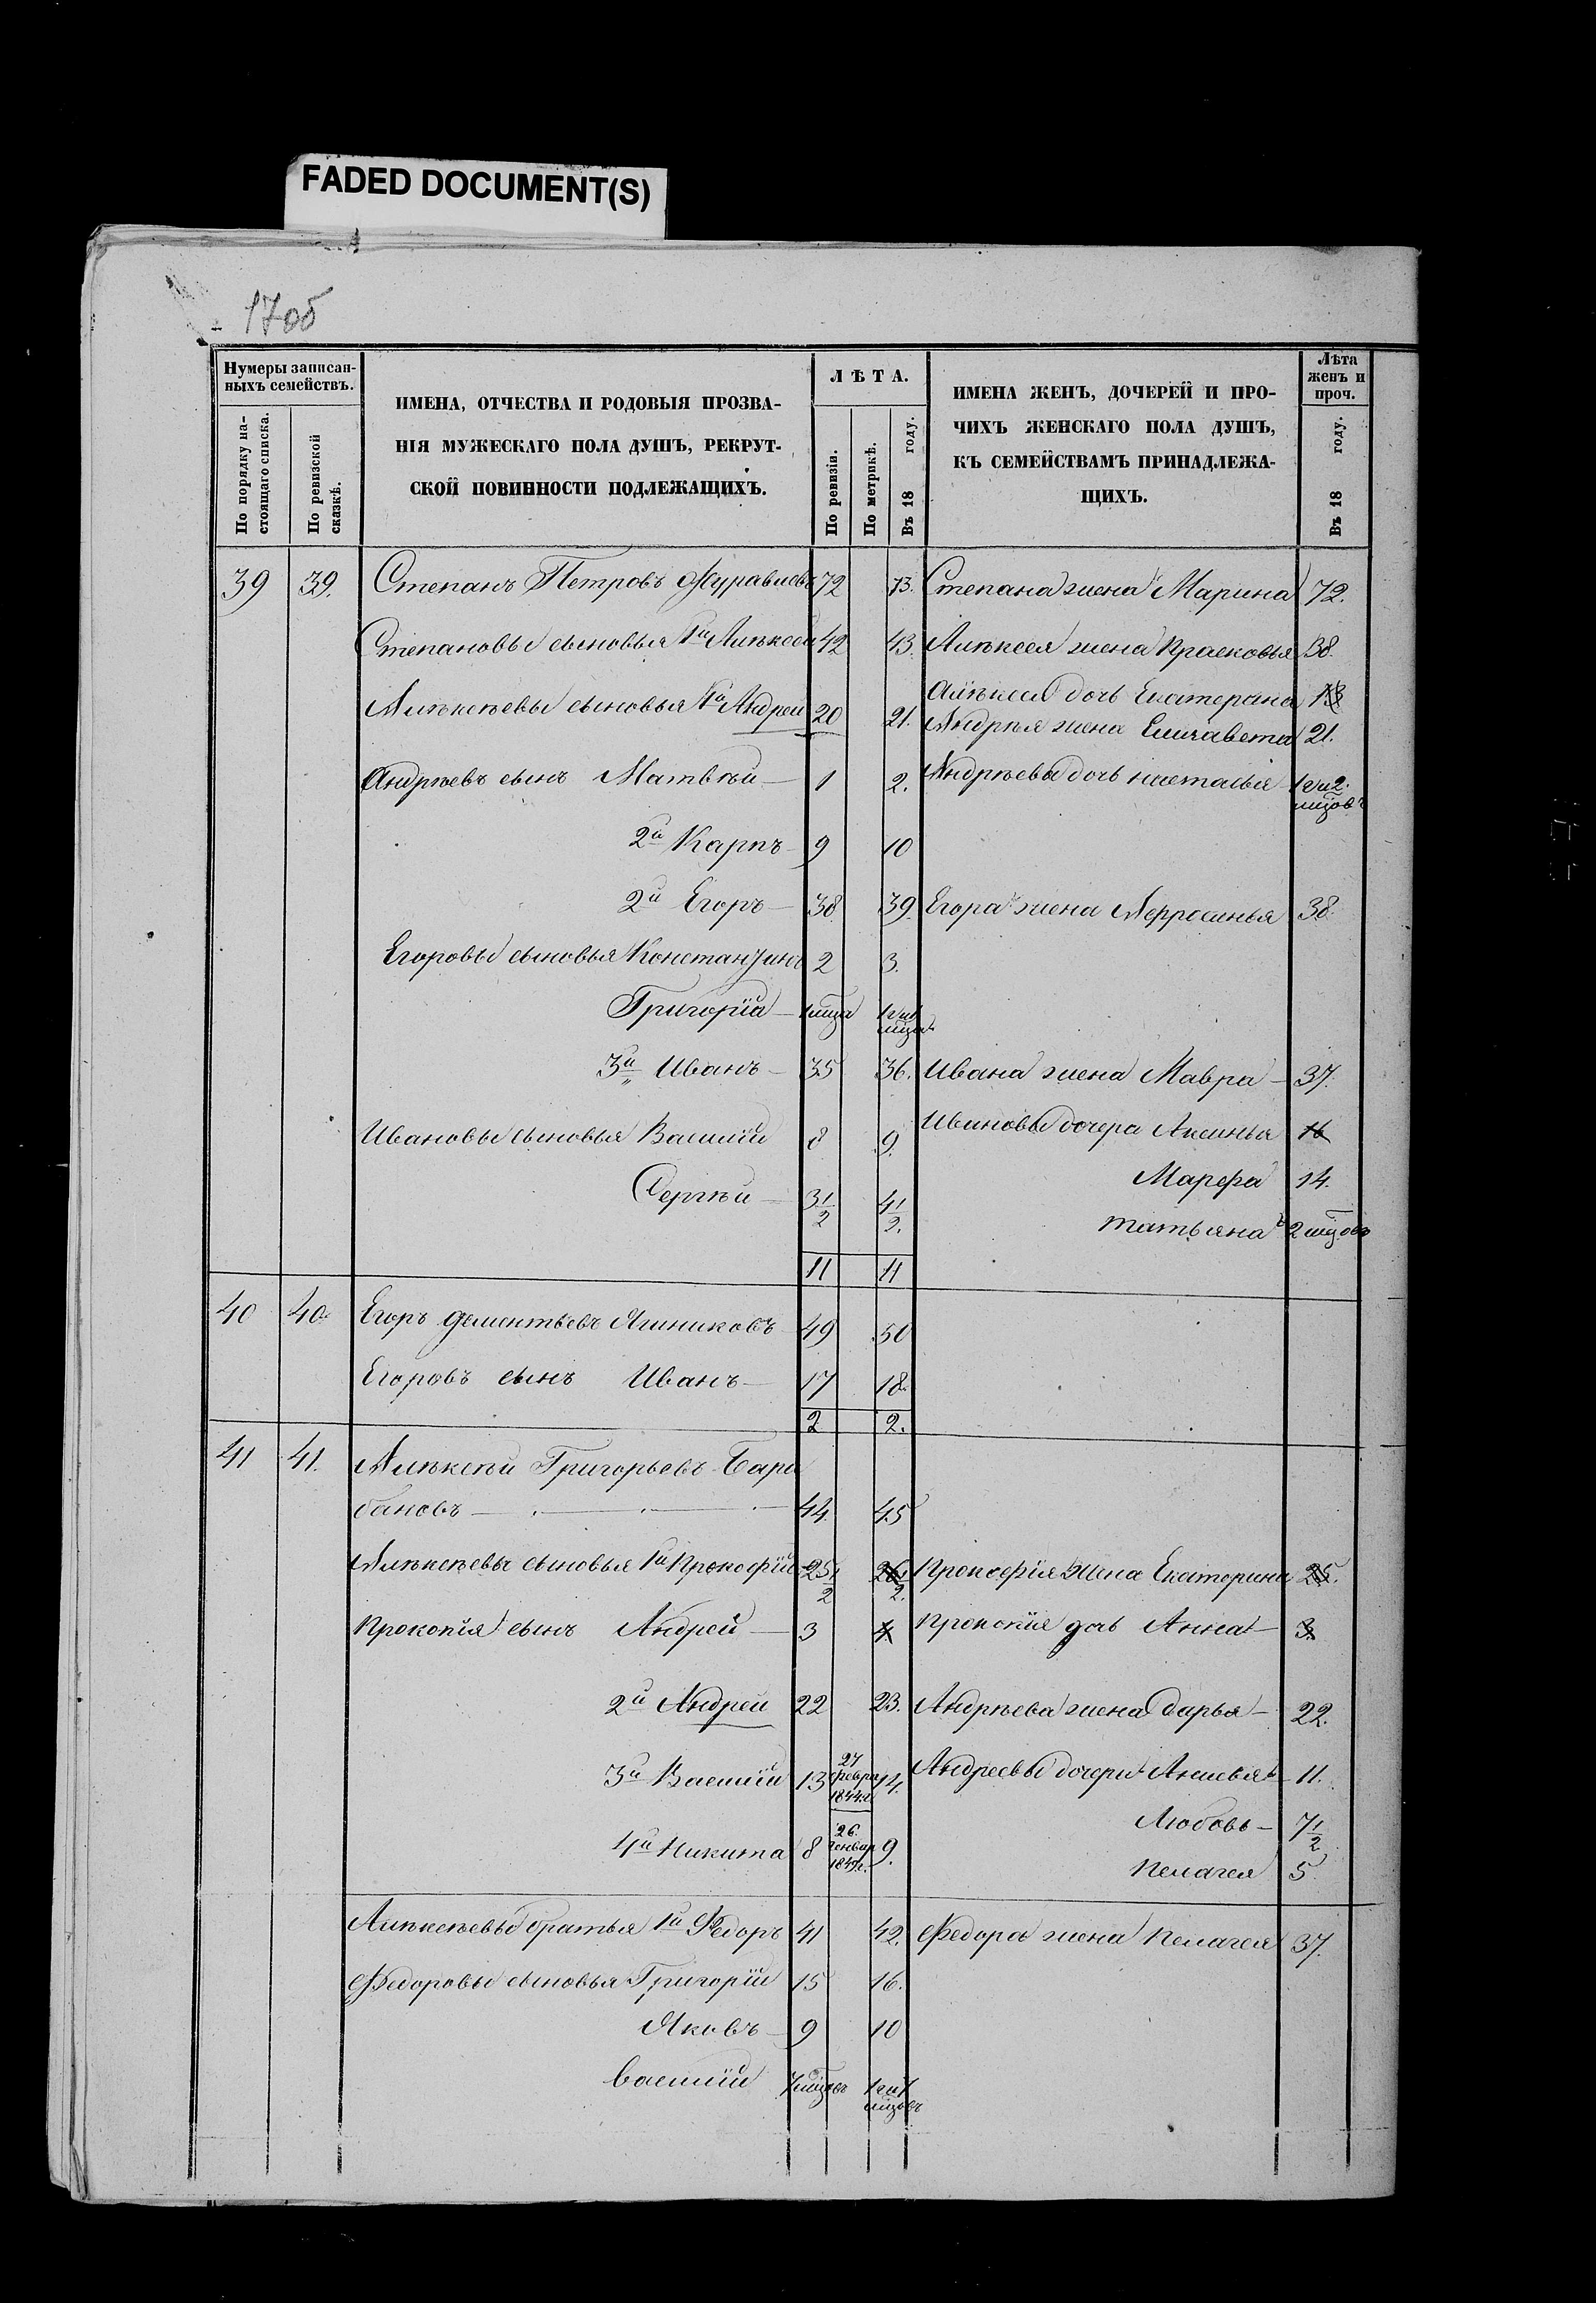 FADED DOCUMENT(S)
17 об
Нумеры записан-
ныхъ семействъ.
По порядку на-
стоящаго списка.
По ревизской
сказкѣ.
ИМЕНА, ОТЧЕСТВА И РОДОВЫЯ ПРОЗВА-
НІЯ МУЖЕСКАГО ПОЛА ДУШЪ, РЕКРУТ-
СКОЙ ПОВИННОСТИ ПОДЛЕЖАЩИХЪ.
ЛѢТА.
По ревизіи.
По метрикѣ.
Въ 18 году.
ИМЕНА ЖЕНЪ, ДОЧЕРЕЙ И ПРО-
ЧИХЪ ЖЕНСКАГО ПОЛА ДУШЪ,
КЪ СЕМЕЙСТВАМЪ ПРИНАДЛЕЖА-
ЩИХЪ.
Лѣта
женъ и
проч.
Въ 18 году.
39 39. Степанъ Петровъ Журавлевъ 72 73. Степана жена Марина 72.
Степановы сыновья 1й Алѣксеи 42 43. Алѣксея жена Прасковья 38.
Алѣксея дочь Екатерина 13
Алѣксѣевы сыновья 1й Андрей 20 21. Андрѣя жена Елизавета 21.
Андрѣевъ сынъ Матвѣй 1 2. Андрѣева дочь настасья 1 г и 2.
мцовъ
2й Карпъ 9 10
2й Егоръ 38 39. Егора жена Аефросинья 38.
Егоровы сыновья Константинъ 2 3.
Григорій 1 мца 1 г и 1
мца.
3й Иванъ 35 36. Ивана жена Мавра 37.
Ивановы сыновья Василій 8 9. Ивановы дочери Аксинья 16
Сергѣй 3 1/2 4 1/2. Марефа 14.
татьяна 2 мцовъ
11 11
40 40. Егоръ дементьевъ 49 50
Егоровъ сынъ Иванъ 17 18.
2 2.
41 41. Алѣксѣй Григорьевъ Бара
бановъ 44. 45
Алѣксѣевы сыновья 1й Прокофій 25 1/2 26 1/2. Прокофія жена Екатерина 25.
Прокопія сынъ Андрей 3 4. Прокопія дочь Анна 3.
2й Андрей 22 23. Андрѣева жена дарья 22.
3й Василій 13 27 февра 1844 г. 14. Андреевы дочери 11.
Любовь 7 1/2
4й Никита 8 26. генвар 9.
Пелагея 5.
Алѣксѣевы братья 1й Федоръ 41 42. Федора жена Пелагея 37.
Федоровы сыновья Григорій 15 16.
Яковъ 9 10
василій 7 мцовъ 1 г и 7
мцовъ